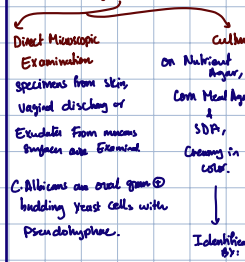 Direct Microscopic
Examination
specimens from skin,
vaginal discharg or
Exudates From mucous
surfaces are Examined
C.Albicans are oval gram ⊕
budding yeast cells with
Pseudohyphae.
Cultu
on Nutrient
Agar,
Corn Meal Aga
&
SDA,
Creamy in
color.
Identifica
By: